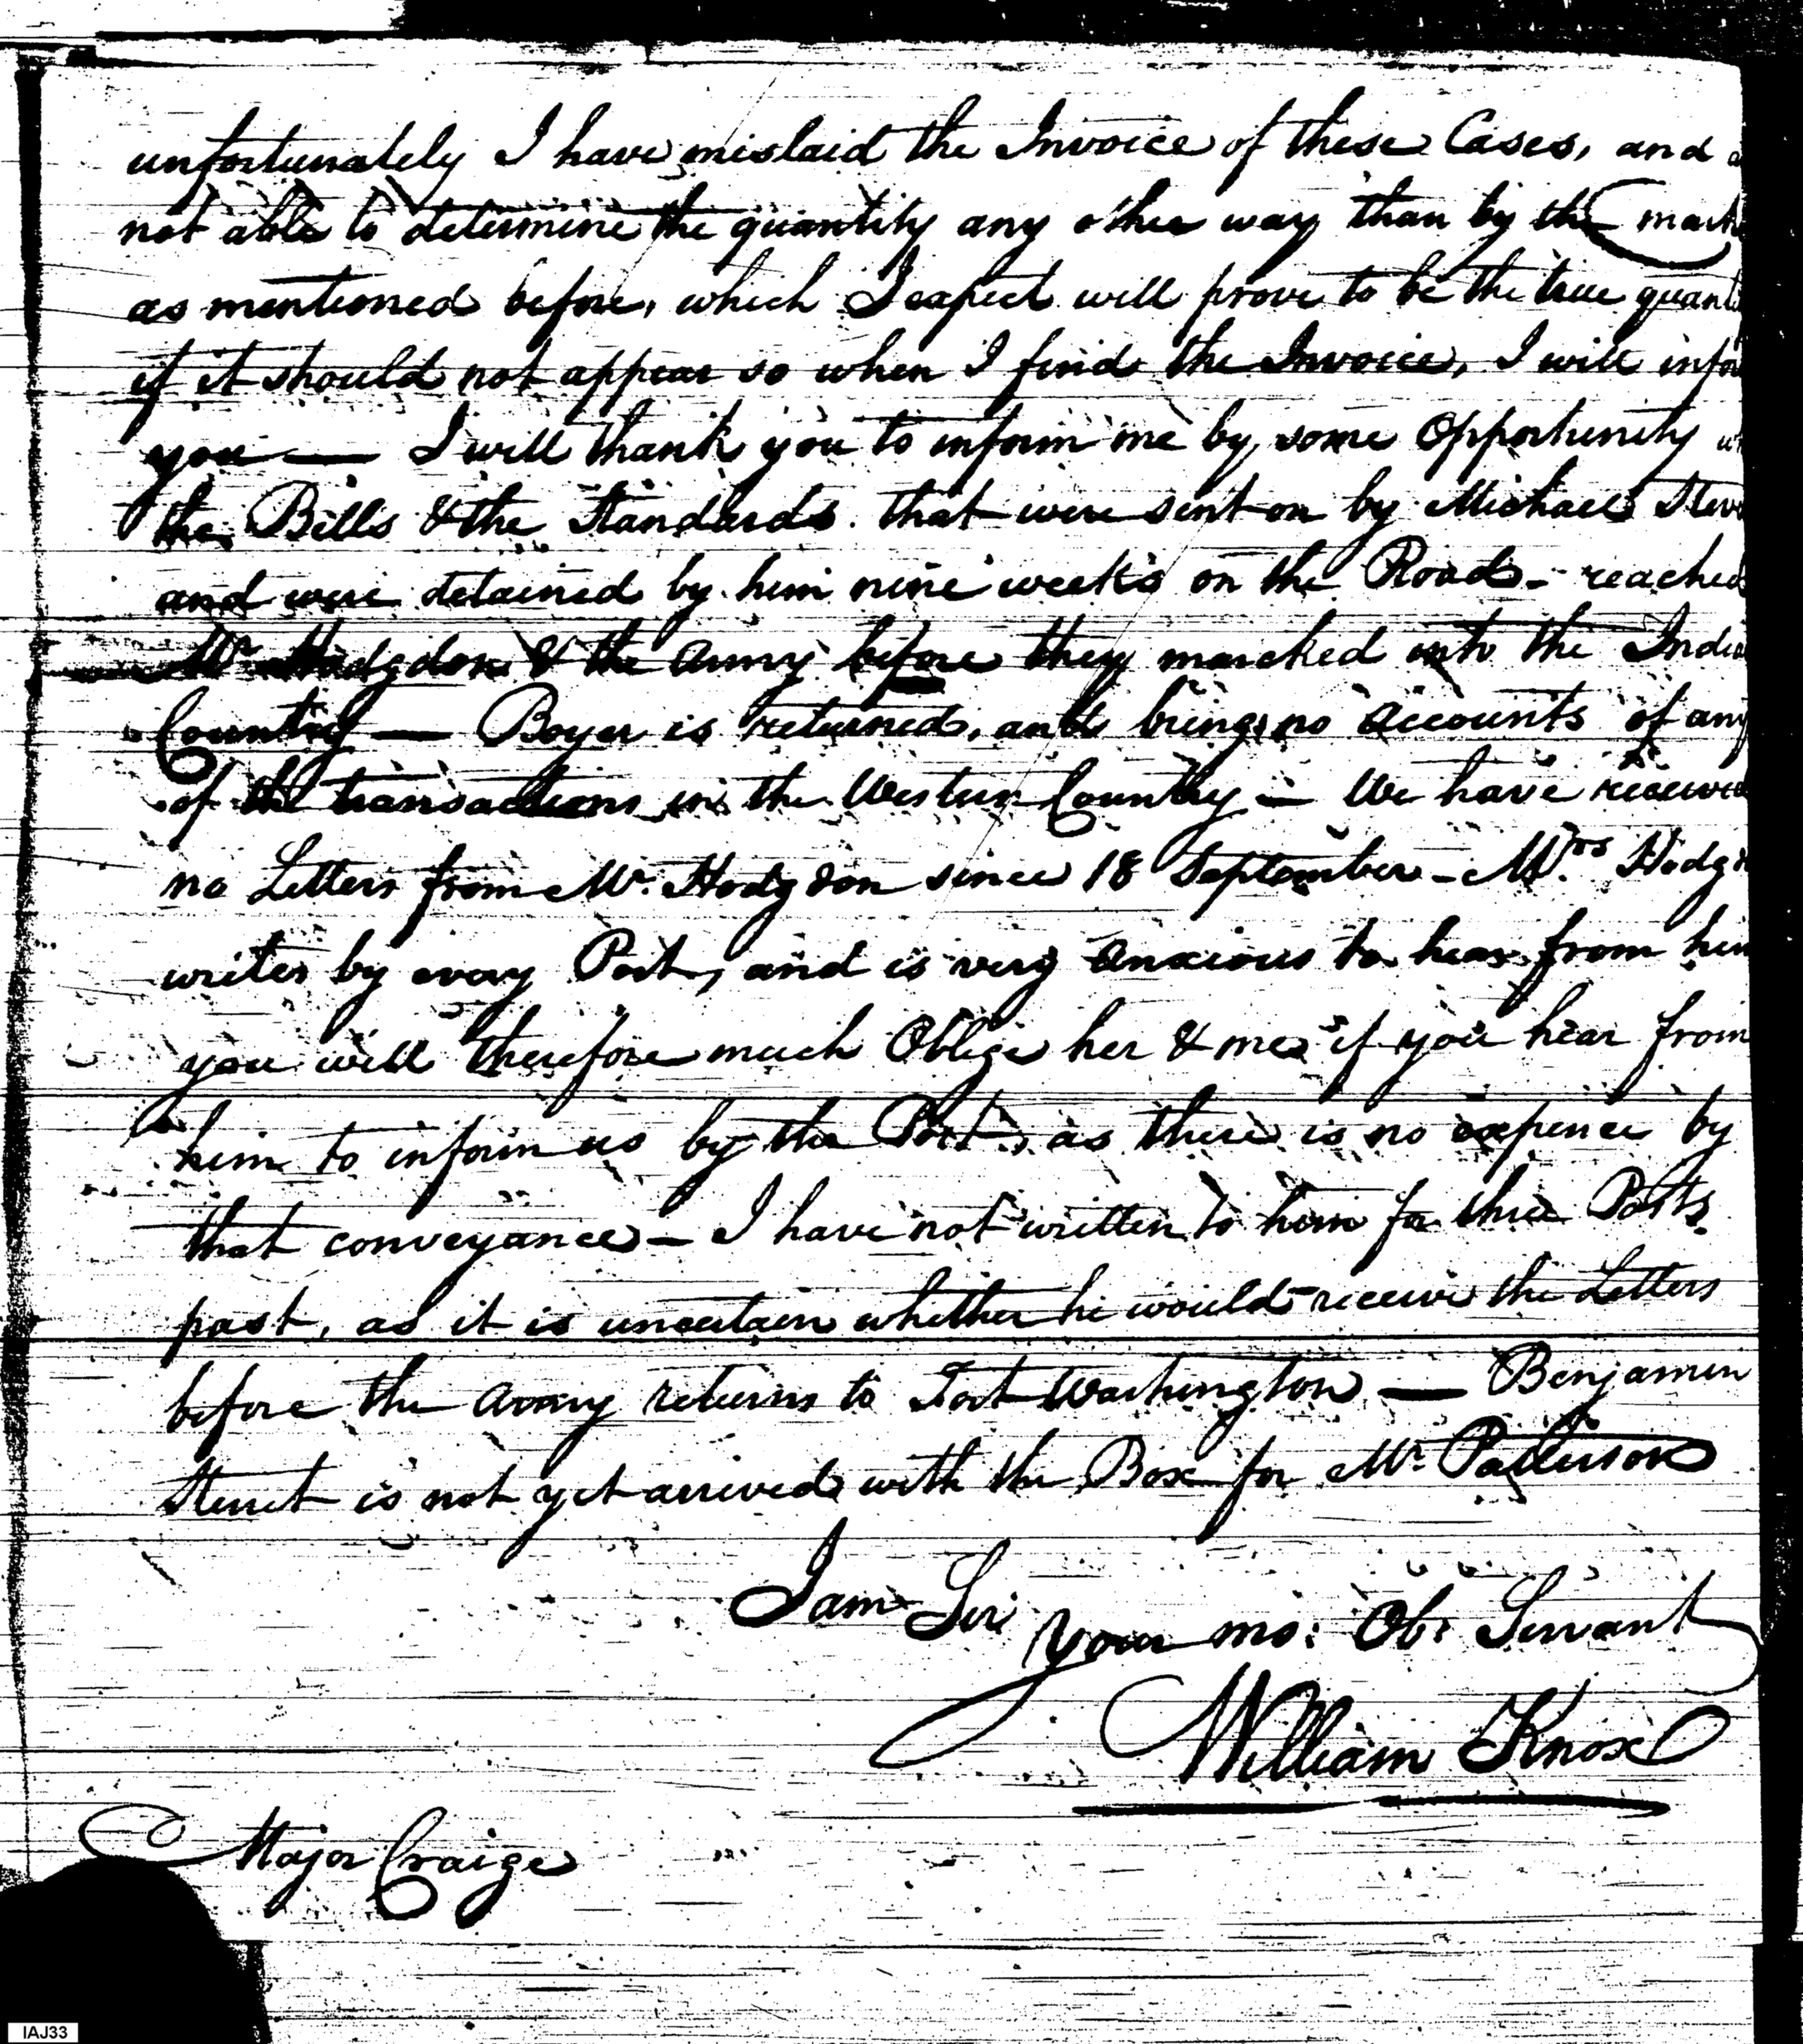 unfortunately I have mislaid the Invoice of these Cases, and a
not able to determine the quantity any other way than by the mark
as mentioned before, which I expect will prove to be the true quanti
if it should not appear so when I find the Invoice, I will info
you — I will thank you to inform me by some Opportunity w
the Bills & the Standards that were sent on by Michael
and were detained by him nine weeks on the Road - reached
Mr Hodgdon & the Army before they marched into the India
Country — Boyer is returned, and brings no accounts of any
of the transactions in the Western Country — We have received
no Letters from Mr. Hodgdon since 18 September - Mrs Hodgd
writes by every Post, and is very anxious to hear from him
you will therefore much Oblige her & me if you hear from
him to inform us by the Post, as there is no expence by
that conveyance - I have not written to him for three Posts
past, as it is uncertain whether he would receive the Letters
before the Army returns to Fort Washington — Benjamin
Sterret is not yet arrived with the Box for Mr. Patterson
I am Sir
your mo: Ob: Servant
William Knox
Major Craige
IAJ33